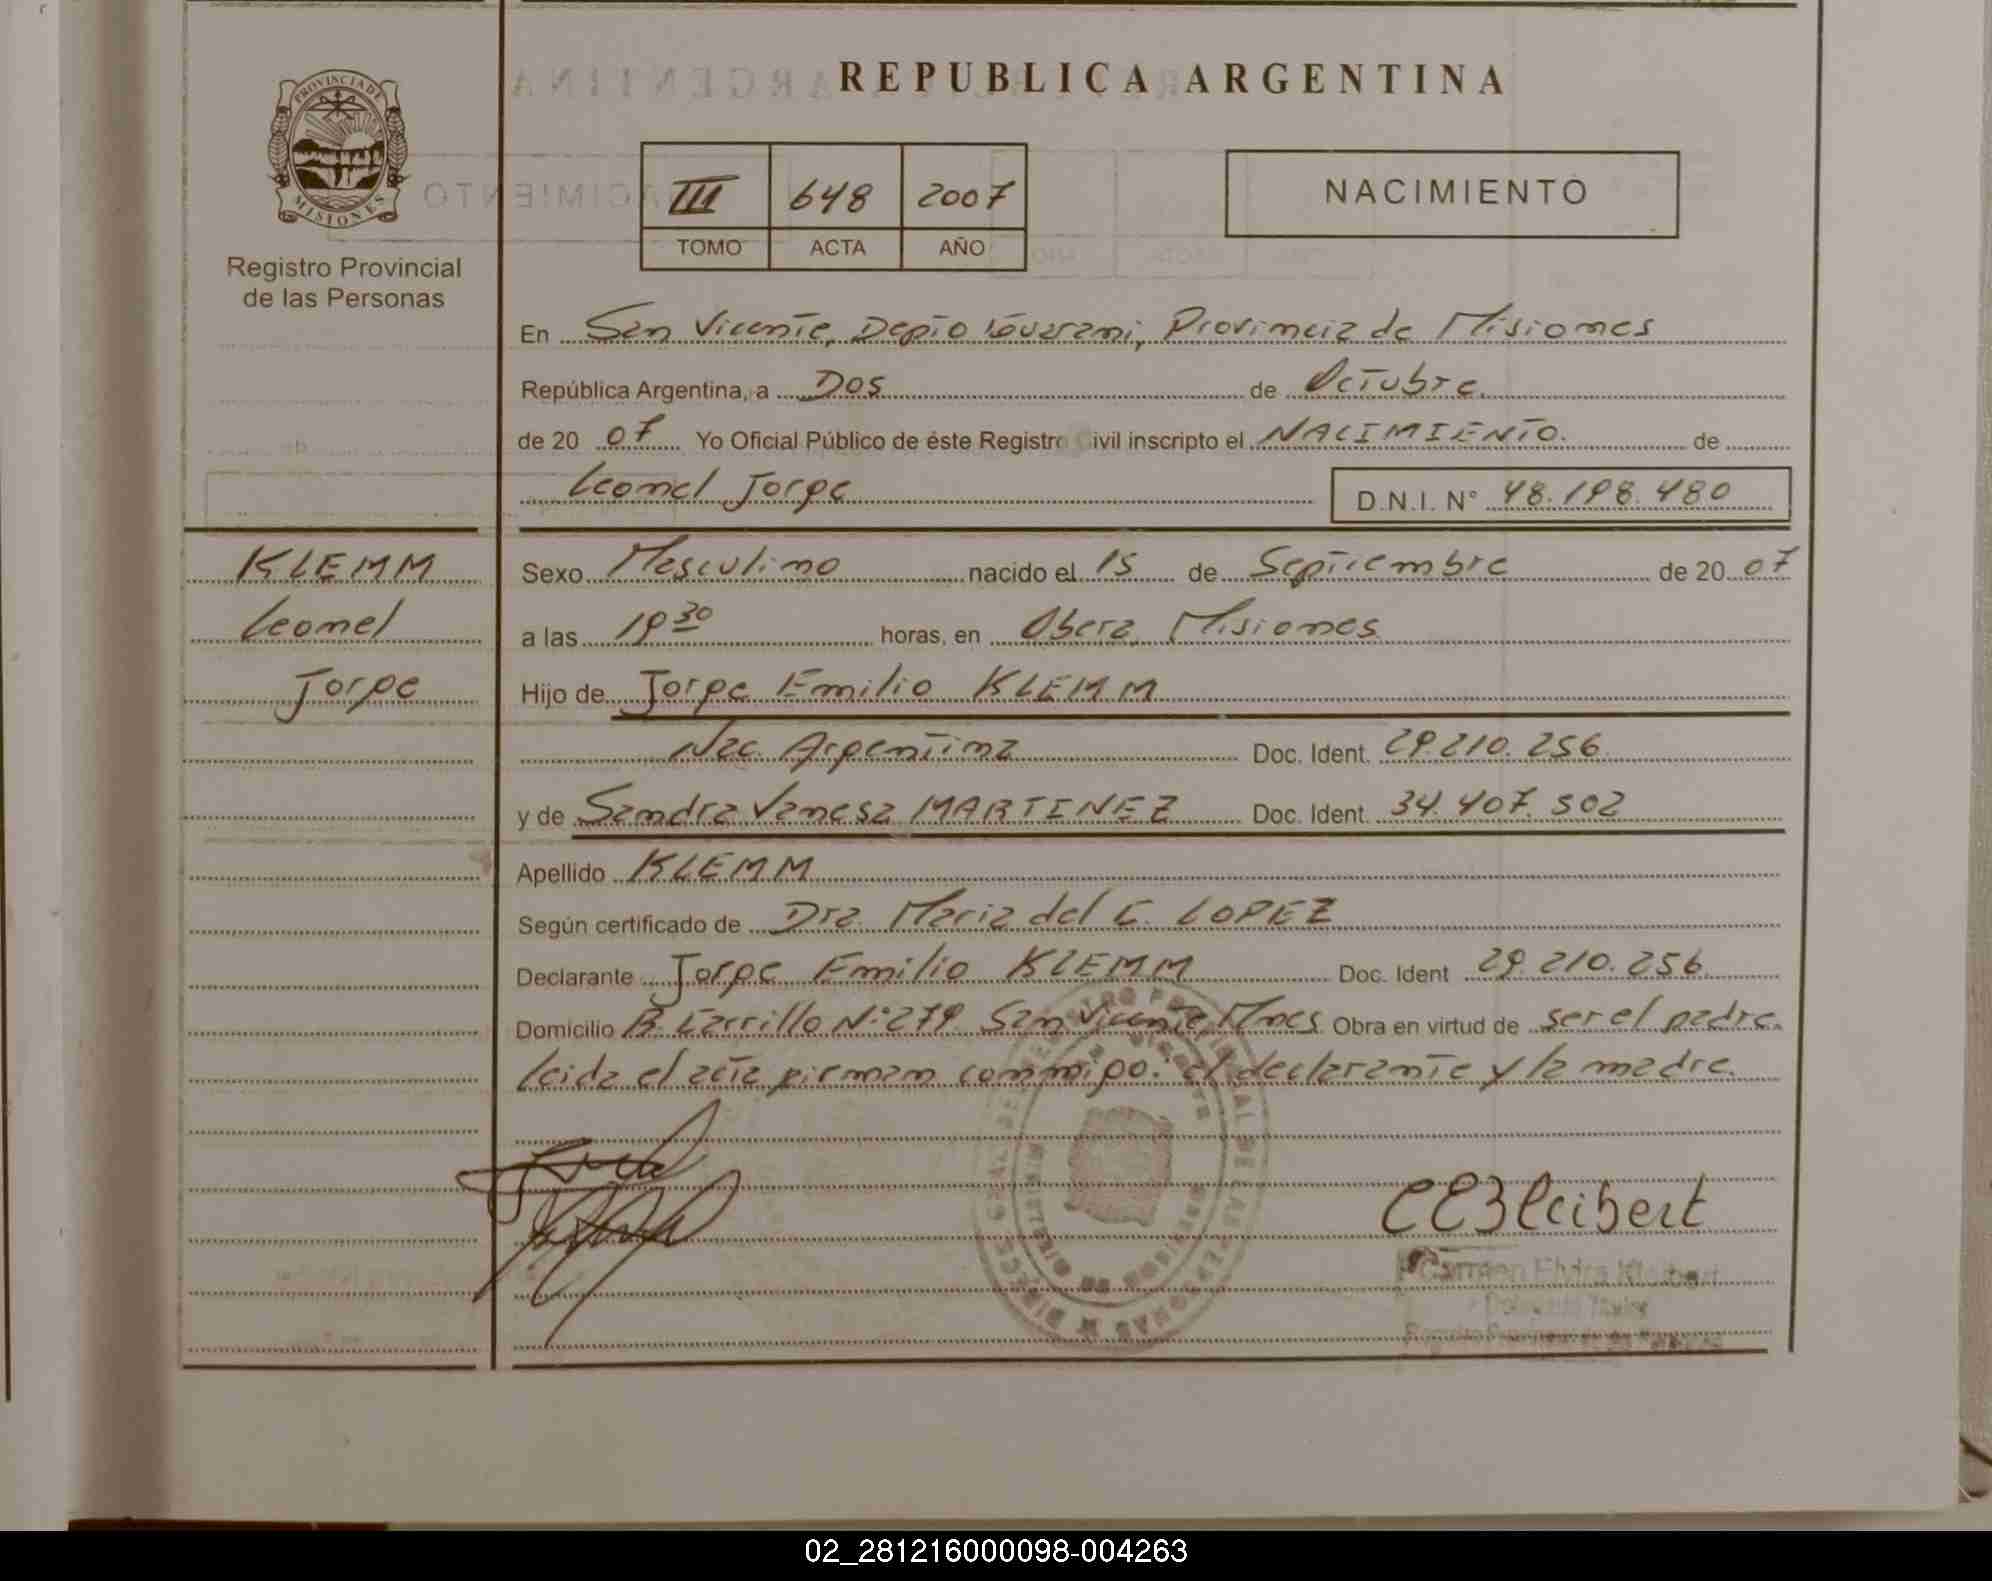 REPUBLICA ARGENTINA
PROVINCIA DE
MISIONES
Registro Provincial
de las Personas
III 648 2007
TOMO ACTA AÑO
NACIMIENTO
En San Vicente, Depto Guarani, Provincia de Misiones
República Argentina, a Dos de Octubre.
de 20 07 Yo Oficial Público de éste Registro Civil inscripto el NACIMIENTO. de
Leonel Jorge D.N.I. N° 48.198.480
KLEMM
Leonel
Jorge
Sexo Masculino nacido el 15 de Septiembre de 20 07
a las 19 30 horas, en Obera, Misiones
Hijo de Jorge Emilio KLEMM
Nac. Argentina Doc. Ident. 29.210.256.
y de Sandra Vanesa MARTINEZ Doc. Ident. 34.407.502
Apellido KLEMM
Según certificado de Dra. Maria del C. LOPEZ
Declarante Jorge Emilio KLEMM Doc. Ident 29.210.256
Domicilio B. Carrillo N°279 San Vicente, Mnes Obra en virtud de ser el padre.
leida el acta firman conmigo: el declarante y la madre.
Carmen
02_281216000098-004263